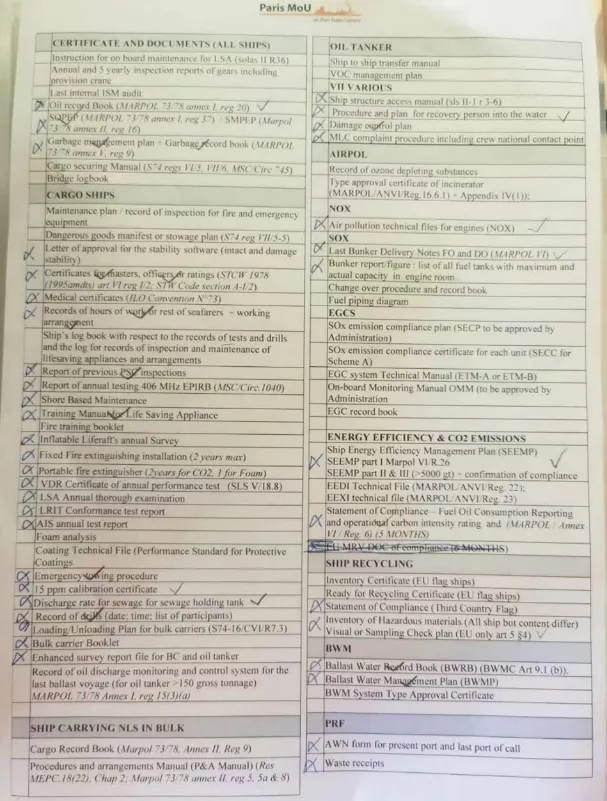 Paris MoU
on Port State Control
CERTIFICATE AND DOCUMENTS (ALL SHIPS)
Instruction for on board maintenance for LSA (solas II R36)
Annual and 5 yearly inspection reports of gears including
provision crane
Last internal ISM audit
Oil record Book (MARPOL 73/78 annex I, reg 20)
SOPEP (MARPOL 73/78 annex I, reg 37) / SMPEP (Marpol
73/78 annex II, reg 16)
Garbage management plan + Garbage record book (MARPOL
73/78 annex V, reg 9)
Cargo securing Manual (S74 regs VI/5, VII/6, MSC/Circ 745)
Bridge logbook
CARGO SHIPS
Maintenance plan / record of inspection for fire and emergency
equipment
Dangerous goods manifest or stowage plan (S74 reg VII/5-5)
Letter of approval for the stability software (intact and damage
stability)
Certificates for masters, officers or ratings (STCW 1978
(1995amdts) art VI reg I/2; STW Code section A-I/2)
Medical certificates (ILO Convention N°73)
Records of hours of work or rest of seafarers + working
arrangement
Ship's log book with respect to the records of tests and drills
and the log for records of inspection and maintenance of
lifesaving appliances and arrangements
Report of previous PSC inspections
Report of annual testing 406 MHz EPIRB (MSC/Circ.1040)
Shore Based Maintenance
Training Manual for Life Saving Appliance
Fire training booklet
Inflatable Liferaft's annual Survey
Fixed Fire extinguishing installation (2 years max)
Portable fire extinguisher (2years for CO2, 1 for Foam)
VDR Certificate of annual performance test (SLS V/18.8)
LSA Annual thorough examination
LRIT Conformance test report
AIS annual test report
Foam analysis
Coating Technical File (Performance Standard for Protective
Coatings
Emergency towing procedure
15 ppm calibration certificate
Discharge rate for sewage for sewage holding tank
Record of drills (date; time; list of participants)
Loading/Unloading Plan for bulk carriers (S74-16/CVI/R7.3)
Bulk carrier Booklet
Enhanced survey report file for BC and oil tanker
Record of oil discharge monitoring and control system for the
last ballast voyage (for oil tanker >150 gross tonnage)
MARPOL 73/78 Annex I, reg 15(3)(a)
SHIP CARRYING NLS IN BULK
Cargo Record Book (Marpol 73/78, Annex II, Reg 9)
Procedures and arrangements Manual (P&A Manual) (Res
MEPC.18(22), Chap 2; Marpol 73/78 annex II, reg 5, 5a & 8)
OIL TANKER
Ship to ship transfer manual
VOC management plan
VII VARIOUS
Ship structure access manual (sls II-1 r 3-6)
Procedure and plan for recovery person into the water
Damage control plan
MLC complaint procedure including crew national contact point
AIRPOL
Record of ozone depleting substances
Type approval certificate of incinerator
(MARPOL/ANVI/Reg.16.6.1) + Appendix IV(1));
NOX
Air pollution technical files for engines (NOX)
SOX
Last Bunker Delivery Notes FO and DO (MARPOL VI)
Bunker report/figure : list of all fuel tanks with maximum and
actual capacity in engine room.
Change over procedure and record book
Fuel piping diagram
EGCS
SOx emission compliance plan (SECP to be approved by
Administration)
SOx emission compliance certificate for each unit (SECC for
Scheme A)
EGC system Technical Manual (ETM-A or ETM-B)
On-board Monitoring Manual OMM (to be approved by
Administration
EGC record book
ENERGY EFFICIENCY & CO2 EMISSIONS
Ship Energy Efficiency Management Plan (SEEMP)
SEEMP part I Marpol VI/R.26
SEEMP part II & III (>5000 gt) + confirmation of compliance
EEDI Technical File (MARPOL/ANVI/Reg. 22);
EEXI technical file (MARPOL/ANVI/Reg. 23)
Statement of Compliance – Fuel Oil Consumption Reporting
and operational carbon intensity rating and (MARPOL / Annex
VI / Reg. 6) (5 MONTHS)
EU MRV DOC of compliance (6 MONTHS)
SHIP RECYCLING
Inventory Certificate (EU flag ships)
Ready for Recycling Certificate (EU flag ships)
Statement of Compliance (Third Country Flag)
Inventory of Hazardous materials (All ship but content differ)
Visual or Sampling Check plan (EU only art 5 §4)
BWM
Ballast Water Record Book (BWRB) (BWMC Art 9.1 (b)).
Ballast Water Management Plan (BWMP)
BWM System Type Approval Certificate
PRF
AWN form for present port and last port of call
Waste receipts